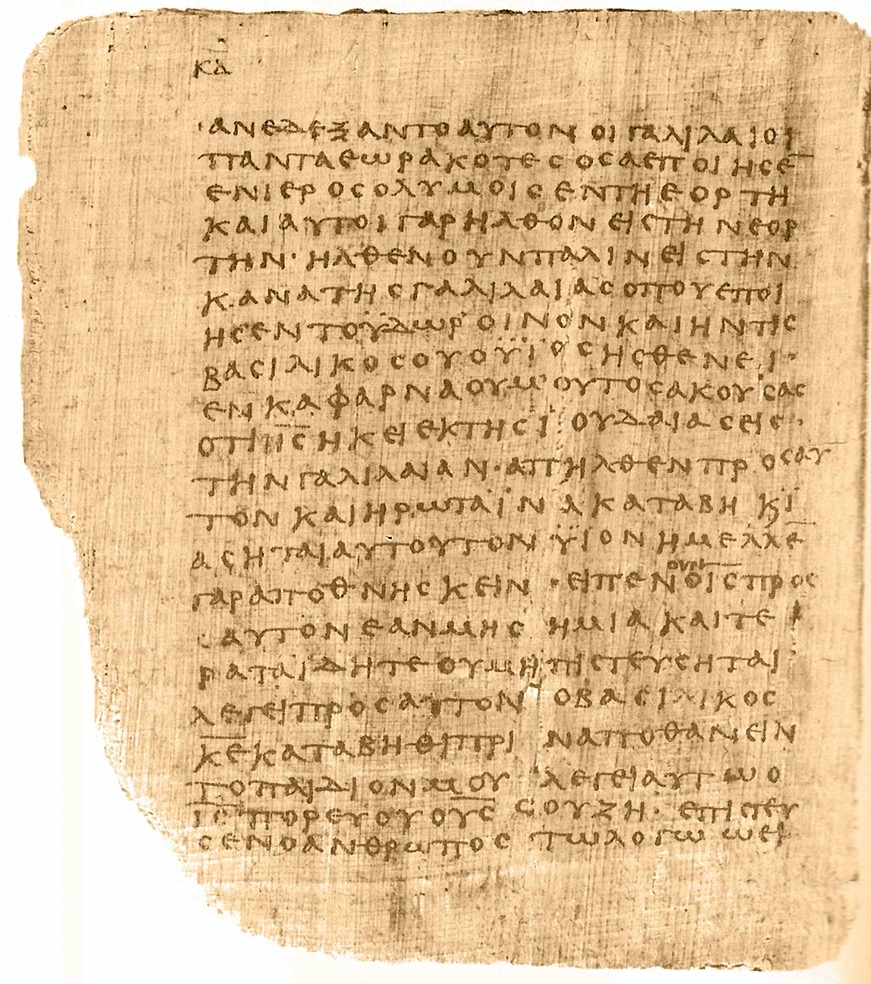 ΚΔ
·ΑΝΕΔΕΞΑΝΤΟΑΥΤΟΝ ΟΙ ΓΑΛΙΛΑΙΟΙ
ΠΑΝΤΑΕΩΡΑΚΟΤΕϹ ΟϹΑΕΠΟΙΗϹΕ̅
ΕΝΙΕΡΟϹΟΛΥΜΟΙϹ ΕΝΤΗΕΟΡΤΗ
ΚΑΙΑΥΤΟΙΓΑΡΗΛΘΟΝ ΕΙϹΤΗΝΕΟΡ
ΤΗΝ· ΗΛΘΕΝΟΥΝΠΑΛΙΝ ΕΙϹΤΗΝ
ΚΑΝΑΤΗϹΓΑΛΙΛΑΙΑϹ ΟΠΟΥΕΠΟΙ
ΗϹΕΝΤΟΥΔΩΡ ΟΙΝΟΝΚΑΙΗΝΤΙϹ
ΒΑϹΙΛΙΚΟϹΟΥΟΫΙΟϹΗϹΘΕΝΕΙ·
ΕΝΚΑΦΑΡΝΑΟΥΜ·ΟΥΤΟϹΑΚΟΥϹΑϹ
ΟΤΙΙ̅Ϲ̅ΗΚΕΙΕΚΤΗϹΙΟΥΔΑΙΑϹΕΙϹ·
ΤΗΝΓΑΛΙΛΑΙΑΝ·ΑΠΗΛΘΕΝΠΡΟϹΑΥ
ΤΟΝ ΚΑΙΗΡΩΤΑΙΝΑΚΑΤΑΒΗ ΚΙ
ΑϹΗΤΑΙΑΥΤΟΥΤΟΝ ΫΙΟΝΗΜΕΛΛΕ̅
ΓΑΡΑΠΟΘΝΗϹΚΕΙΝ ·ΕΙΠΕΝ`ΟΥΝ´ΟΙ̅Ϲ̅ΠΡΟϹ
ΑΥΤΟΝΕΑΝΜΗϹ ΗΜΙΑΚΑΙΤΕ
ΡΑΤΑΙΔΗΤΕΟΥΜΗΠΙϹΤΕΥϹΗΤΑΙ
ΛΕΓΕΙΠΡΟϹΑΥΤΟΝ ΟΒΑϹΙΛΙΚΟϹ
Κ̅Ε̅ΚΑΤΑΒΗΘΙΠΡΙΝΑΠΟΘΑΝΕΙΝ
ΤΟΠΑΙΔΙΟΝΜΟΥ ΛΕΓΕΙΑΥΤΩΟ
Ι̅Ϲ̅ΠΟΡΕΥΟΥΟΥ̅Ϲ̅ ϹΟΥΖΗ· ΕΠΙϹΤΕΥ
ϹΕΝΟΑΝΘΡΩΠΟϹ ΤΩΛΟΓΩ ΩΕΙ